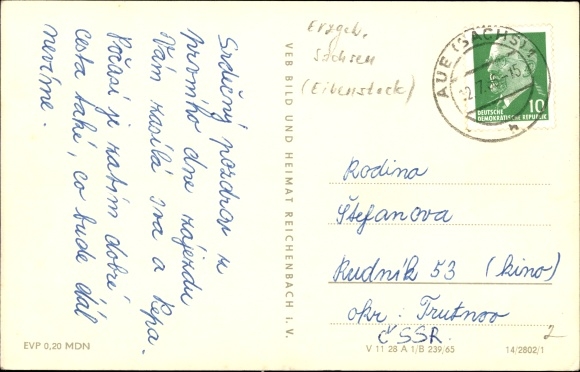 Srdečný pozdrav z
prvního dne zájezdu
Vám zasílá Iva a Pepa.
Počasí je zatím dobré
cesta také, co bude dál
nevíme.
EVP 0,20 MDN
VEB BILD UND HEIMAT REICHENBACH I. V.
V 11 28 A 1/B 239/65
14/2802/1
Erzgeb.
Sachsen
(Eibenstock)
AUE (SACHS)
10
DEUTSCHE
DEMOKRATISCHE REPUBLIK
Rodina
Štefanova
Rudník 53 (kino)
okr. Trutnov
ČSSR.
2